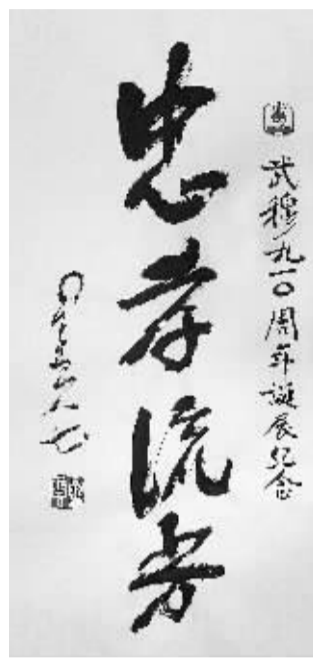 武穆九一〇周年诞辰纪念
忠孝流芳